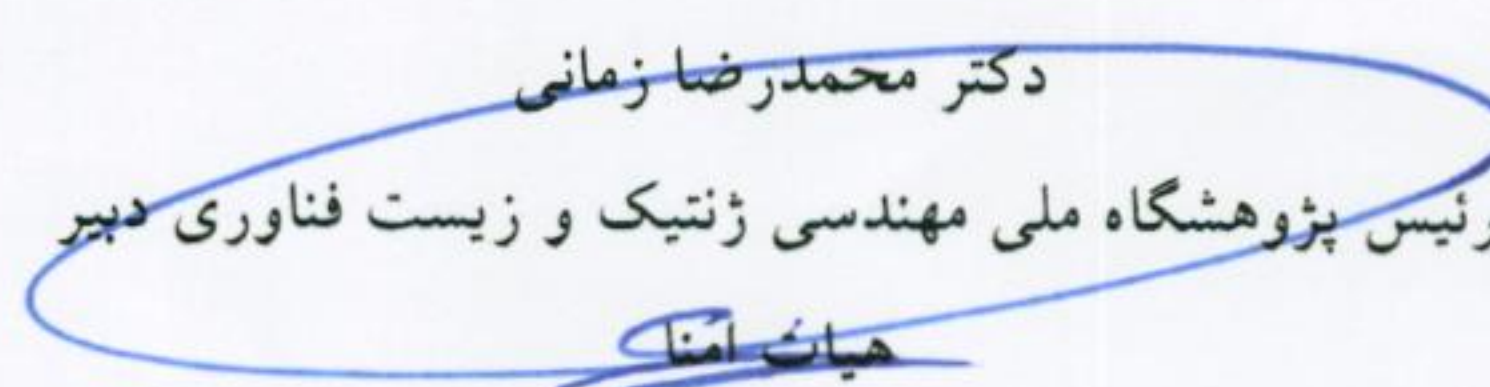 دکتر محمدرضا زمانی
رئیس پژوهشگاه ملی مهندسی ژنتیک و زیست فناوری دبیر
هیات امنا